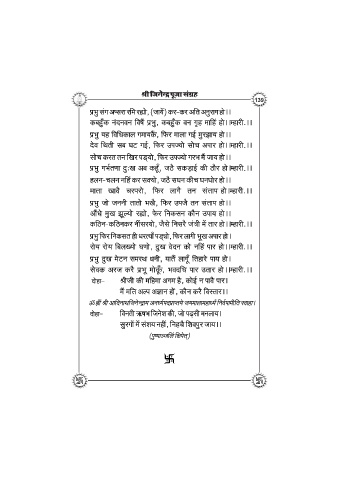 श्री जिनेन्द्र पूजा संग्रह
139
प्रभु संग अप्सरा रमि रह्यो, (जामें) कर-कर अति अनुराग हो।।
कबहुँक नंदनवन विषैं प्रभु, कबहुँक वन गृह माहिं हो। म्हारी.।।
प्रभु यह विधिकाल गमायकैं, फिर माला गई मुरझाय हो।।
देव थिती सब घट गई, फिर उपज्यो सोच अपार हो। म्हारी.।।
सोच करत तन खिर पड्यो, फिर उपज्यो गरभ मैं जाय हो।।
प्रभु गर्भतणा दुःख अब कहूँ, जठै सकड़ाई की ठौर हो म्हारी.।।
हलन-चलन नहिं कर सक्यो, जठै सघन कीच घनघोर हो।।
माता खावै चरपरो, फिर लागै तन संताप हो म्हारी.।।
प्रभु जो जननी तातो भखै, फिर उपजै तन संताप हो।।
औंधे मुख झूल्यो रह्यो, फेर निकसन कौन उपाय हो।।
कठिन-कठिनकर नीसरयो, जैसे निसरै जंत्री में तार हो। म्हारी.।।
प्रभु फिर निकसत ही धरत्यां पड्यो, फिर लागी भूख अपार हो।
रोय रोय बिलख्यो घणो, दुख वेदन को नहिं पार हो। म्हारी.।।
प्रभु दुख मेटन समरथ धनी, यातैं लागूँ तिहारे पाय हो।
सेवक अरज करै प्रभु मोकूँ, भवदधि पार उतार हो। म्हारी.।।
दोहा- श्रीजी की महिमा अगम है, कोई न पावै पार।
मैं मति अल्प अज्ञान हों, कौन करै विस्तार।।
ॐ ह्रीं श्री आदिनाथजिनेन्द्राय अनर्घ्यपदप्राप्तये जयमालामहार्घ्यं निर्वपामीति स्वाहा।
दोहा- विनती ऋषभ जिनेश की, जो पढ़सी मनलाय।
सुरगों में संशय नहीं, निहचै शिवपुर जाय।।
(पुष्पाञ्जलिं क्षिपेत्)